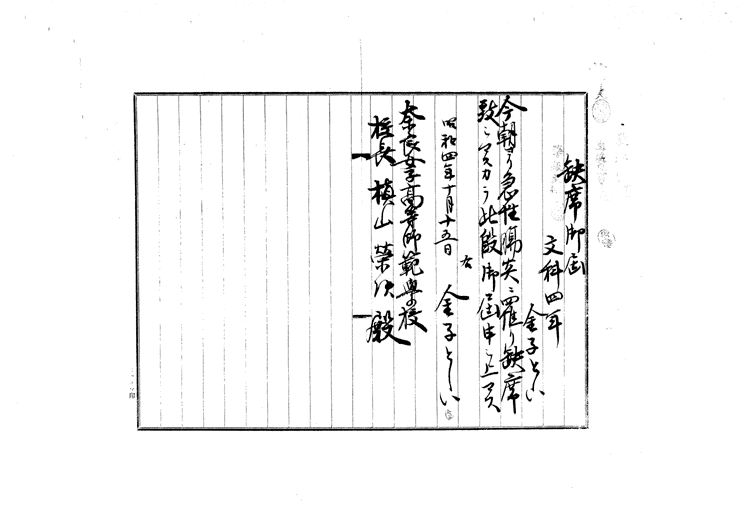 缺席御届
文科四年
金子とし
今朝ヨリ急性腸炎ニ罹リ缺席
致シマスカラ此段御届申シ上マス
昭和四年十月十五日
右
金子とし
奈良女子高等師範學校
校長 槙山榮次殿